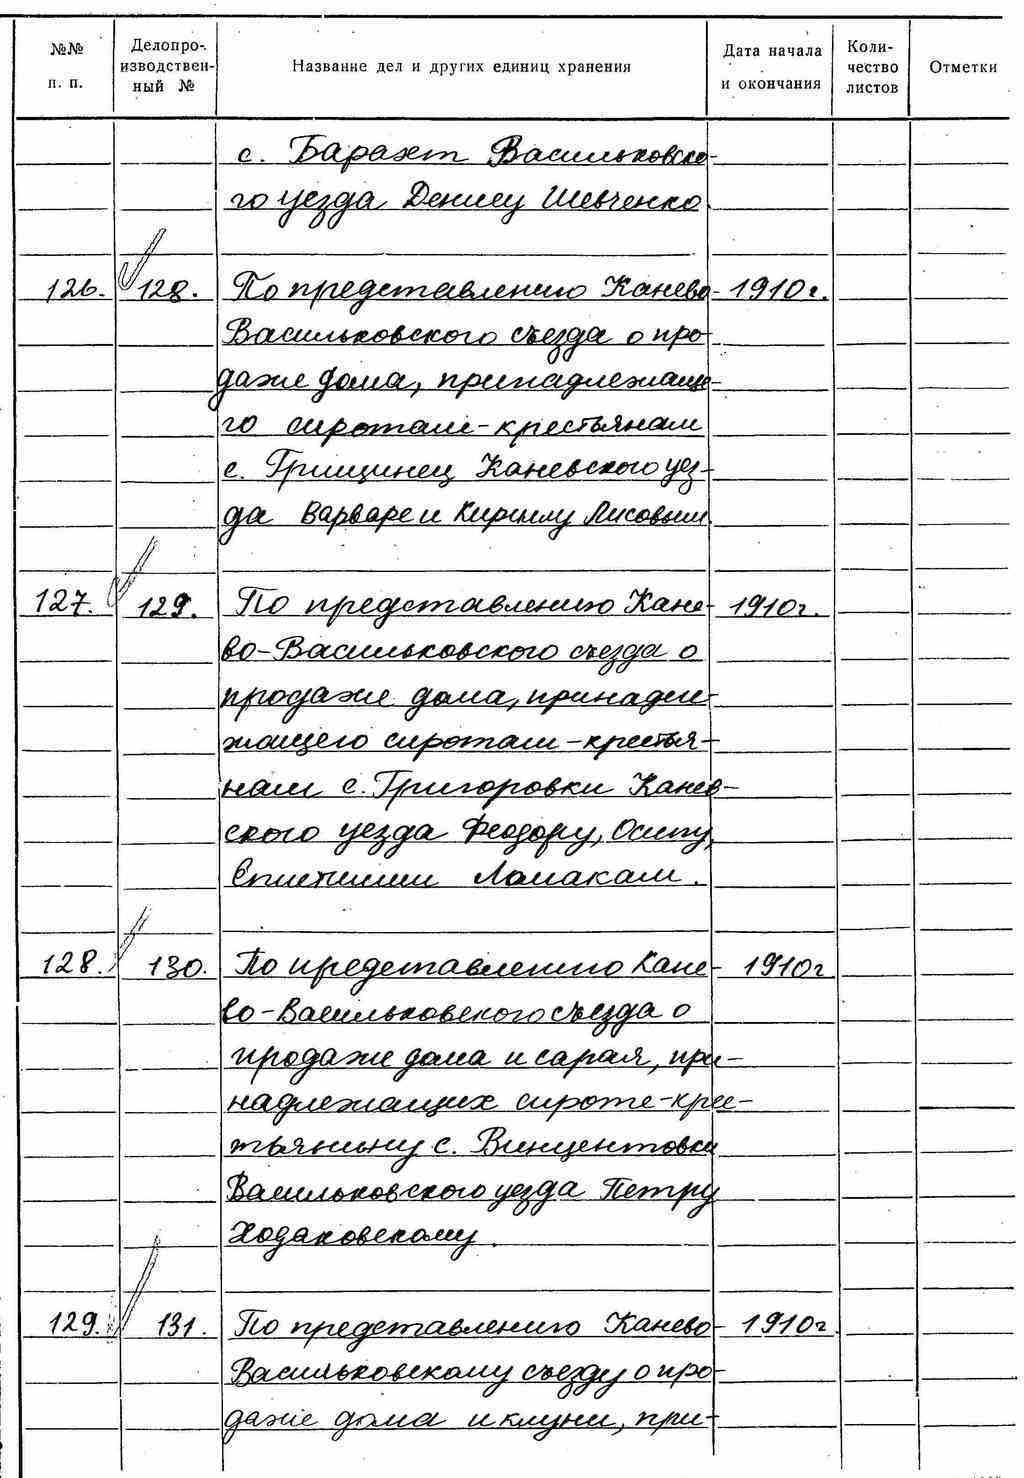 №№ п. п. | Делопроизводственный № | Название дел и других единиц хранения | Дата начала и окончания | Количество листов | Отметки
с. Барахт Васильковско-
го уезда Денису Шевченко.
126. 128. По представлению Канево- 1910г.
Васильковского съезда о про-
даже дома, принадлежаще-
го сиротам-крестьянам
с. Грищинец Каневского уез-
да Варваре и Кириллу Лисовым.
127. 129. По представлению Кане- 1910г.
во-Васильковского съезда о
продаже дома, принадле-
жащего сиротам-крестья-
нам с. Григоровки Канев-
ского уезда Феодору, Осипу,
Ломакам.
128. 130. По представлению Кане- 1910г
во-Васильковского съезда о
продаже дома и сарая, при-
надлежащих сироте-крес-
тьянину с. Винцентовки
Васильковского уезда Петру
Ходаковскому.
129. 131. По представлению Канево- 1910г.
Васильковскому съезду о про-
даже дома и клуни, при-